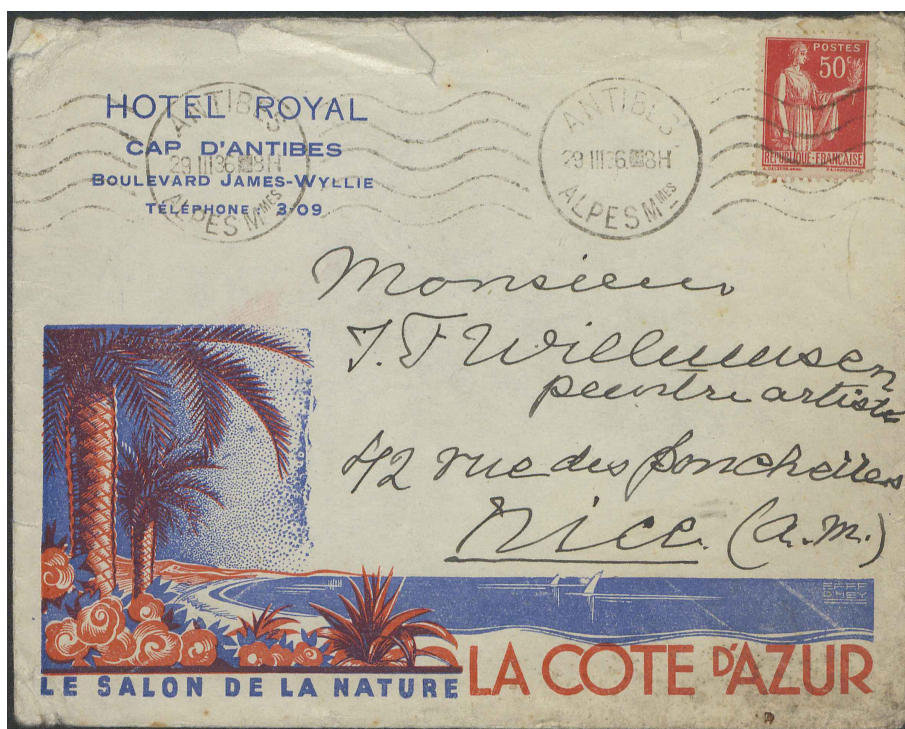 HOTEL ROYAL
CAP D'ANTIBES
BOULEVARD JAMES-WYLLIE
TÉLÉPHONE: 3-09
ANTIBES
29 III 36 8H
ALPES Mmes
ANTIBES
29 III 36 8H
ALPES Mmes
POSTES
50c
RÉPUBLIQUE-FRANÇAISE
Monsieur
J. F Willumsen
peintre artiste
42 rue des Ponchettes
Nice (A.M.)
LE SALON DE LA NATURE
LA COTE D'AZUR